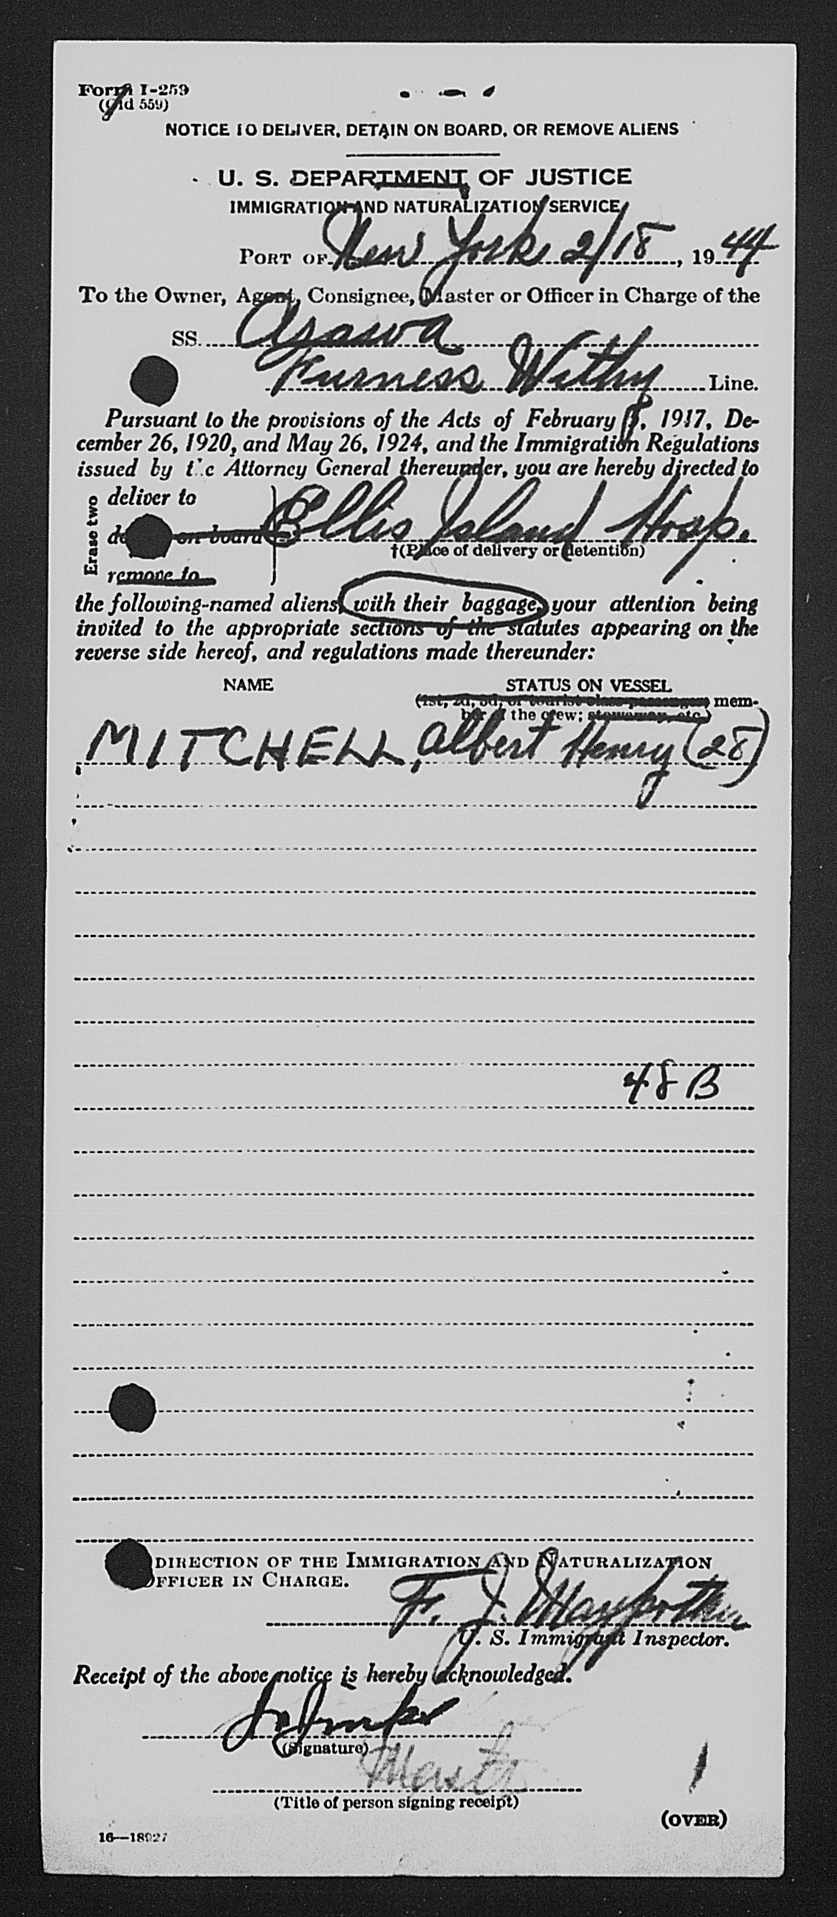 Form I-259
(Old 559)
NOTICE TO DELIVER, DETAIN ON BOARD, OR REMOVE ALIENS
U. S. DEPARTMENT OF JUSTICE
IMMIGRATION AND NATURALIZATION SERVICE
PORT OF New York 2/18, 1944
To the Owner, Agent, Consignee, Master or Officer in Charge of the
SS. Arawa
Furness Withy Line.
Pursuant to the provisions of the Acts of February 5, 1917, De-
cember 26, 1920, and May 26, 1924, and the Immigration Regulations
issued by the Attorney General thereunder, you are hereby directed to
Erase two
deliver to
on board
Ellis Island Hosp.
†(Place of delivery or detention)
remove to
the following-named aliens, with their baggage, your attention being
invited to the appropriate sections of the statutes appearing on the
reverse side hereof, and regulations made thereunder:
NAME STATUS ON VESSEL
(1st, 2d, 3d, or tourist class passenger; mem-
ber of the crew; stowaway, etc.)
MITCHELL, Albert Henry (28)
48 B
DIRECTION OF THE IMMIGRATION AND NATURALIZATION
OFFICER IN CHARGE.
F. J.
U. S. Immigrant Inspector.
Receipt of the above notice is hereby acknowledged.
(Signature)
Master
(Title of person signing receipt)
(OVER)
16—18927